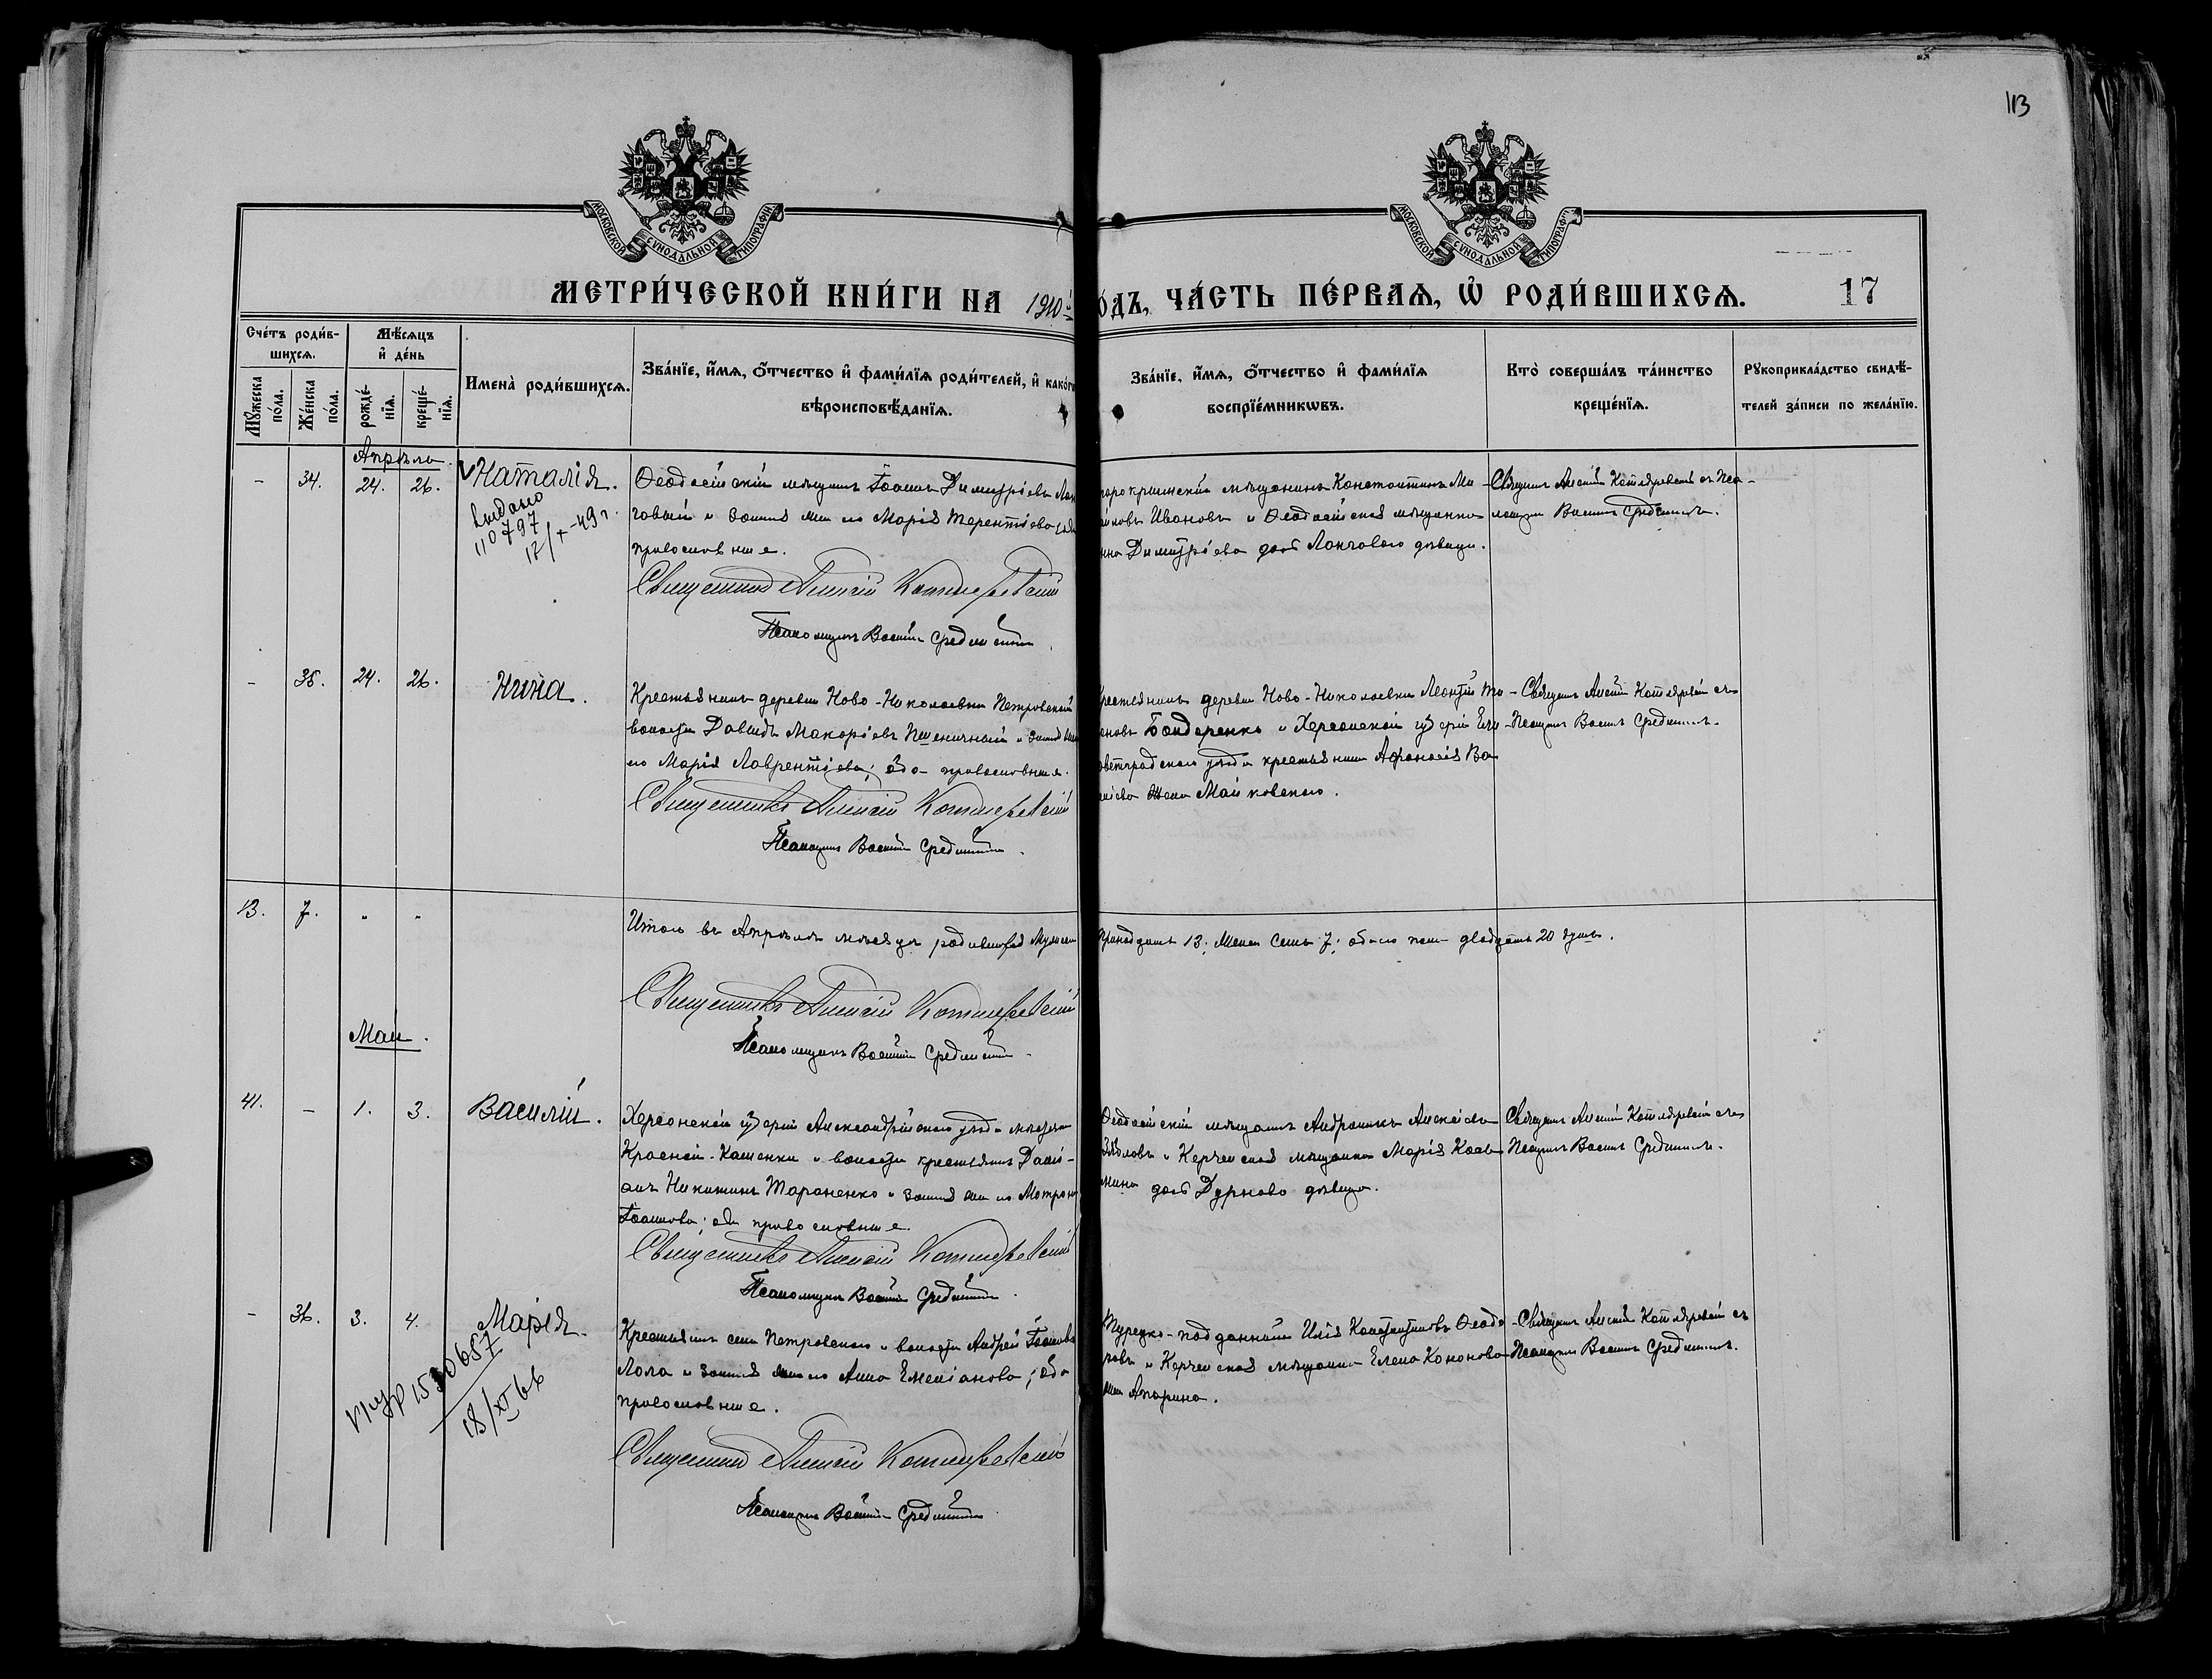 113
МОСКОВСКОЙ СѴНОДАЛЬНОЙ ТИПОГРАФІИ
МОСКОВСКОЙ СѴНОДАЛЬНОЙ ТИПОГРАФІИ
МЕТРИ́ЧЕСКОЙ КНИ́ГИ НА 1910 й
О́ДЪ, ЧА́СТЬ ПЕ́РВАѦ, Ѡ РОДИ́ВШИХСѦ. 17
Сче́тъ роди́в-
шихсѧ.
Мꙋжеска по́ла.
Же́нска по́ла.
Мѣ́сѧцъ
и҆ де́нь
рожде́-нїѧ.
креще́-нїѧ.
Имена̀ роди́вшихсѧ.
Зва́нїе, и҆́мѧ, ѻ҆́тчество и҆ фами́лїѧ роди́телей, и҆ како́гѡ
вѣроисповѣ́данїѧ.
Зва́нїе, и҆́мѧ, ѻ҆́тчество и҆ фами́лїѧ
воспрїе́мникѡвъ.
Кто̀ соверша́лъ та́инство
креще́нїѧ.
Рꙋкоприкла́дство свидѣ́-
телей за́писи по жела́нїю.
Апрѣль
- 34. 24. 26. Наталія.
выдано
110797
17/X-49г.
Ѳеодосійскій мѣщанинъ Іоаннъ Димитріевъ Лон
говый и законная жена его Марія Терентіева; оба
православные.
Священникъ Алексій Котляревскій
Псаломщикъ Василій Срединскій
тарокрымскій мѣщанинъ Константинъ Ми
аиловъ Ивановъ и Ѳеодосійская мѣщанка
нна Димитріева дочь Лонгового дѣвица.
Священ. Алексій Котляревскій съ Пса-
ломщик. Василіемъ Срединскимъ.
- 35. 24. 26. Нина.
Крестьянинъ деревни Ново-Николаевки Петровской
волости Давидъ Макаріевъ Пшеничный и законная жена
его Марія Лаврентіева; оба православные.
Священникъ Алексій Котляревскій
Псаломщикъ Василій Срединскій
рестьянинъ деревни Ново-Николаевки Леонтій
оновъ Бондаренко и Херсонской губерніи Ели
аветградскаго уѣзда крестьянина Афанасія Ва
иліева жена Майковскаго.
Священ. Алексій Котляревскій съ
Псаломщ. Василіемъ Срединскимъ.
13. 7. " "
Итого въ Апрѣлѣ мѣсяцѣ родившихся Мужеска
ринадцать 13; Женска Семь 7; обоего пола двадцать 20 душъ.
Священникъ Алексій Котляревскій
Псаломщикъ Василій Срединскій
Май.
41. - 1. 3. Василій.
Херсонской губерніи Александрійскаго уѣзда мѣстечка
Красной-Каменки и волости крестьянинъ Даміанъ
Никитинъ Тараненко и законная жена его Матрона
Іоаннова; оба православные.
Священникъ Алексій Котляревскій
Псаломщикъ Василій Срединскій
Ѳеодосійскій мѣщанинъ Андроникъ Алексіевъ
Зябловъ и Керченская мѣщанка Марія
мина дочь Дурново дѣвица.
Священ. Алексій Котляревскій съ
Псаломщ. Василіемъ Срединскимъ.
- 36. 3. 4. Марія.
1530657
18/XI 66
Крестьянинъ села Петровскаго и волости Андрей Іоанновъ
Лола и законная жена его Анна Емеліанова; оба
православные.
Священникъ Алексій Котляревскій
Псаломщикъ Василій Срединскій
Турецко-подданный Илія Константиновъ Ѳеодо
ровъ и Керченская мѣщанка Елена Кононова
Апарина.
Священ. Алексій Котляревскій съ
Псаломщ. Василіемъ Срединскимъ.